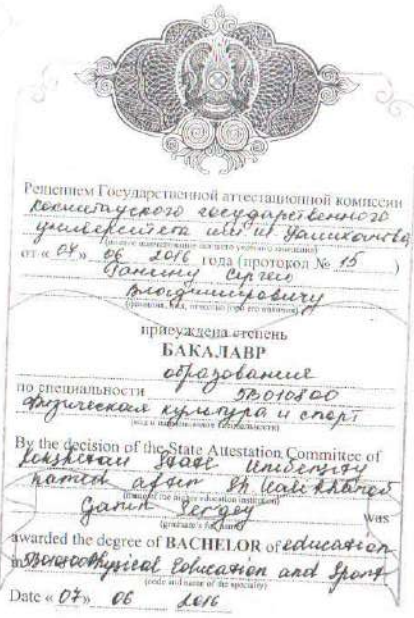 Решением Государственной аттестационной комиссии
Кокшетауского государственного
университета им Ш Уалиханова
(полное наименование высшего учебного заведения)
от « 07 » 06 2016 года (протокол № 15 )
Ганину Сергею
Владимировичу
(фамилия, имя, отчество (при его наличии))
присуждена степень
БАКАЛАВР
образование
по специальности 5В010800
Физическая культура и спорт
(код и наименование специальности)
By the decision of the State Attestation Committee of
Kokshetau State University
named after Sh Ualikhanov
(name of the higher education institution)
Ganin Sergey was
(graduate's full name)
awarded the degree of BACHELOR of education
in 5B010800 Physical Education and Sport
(code and name of the specialty)
Date « 07 » 06 2016